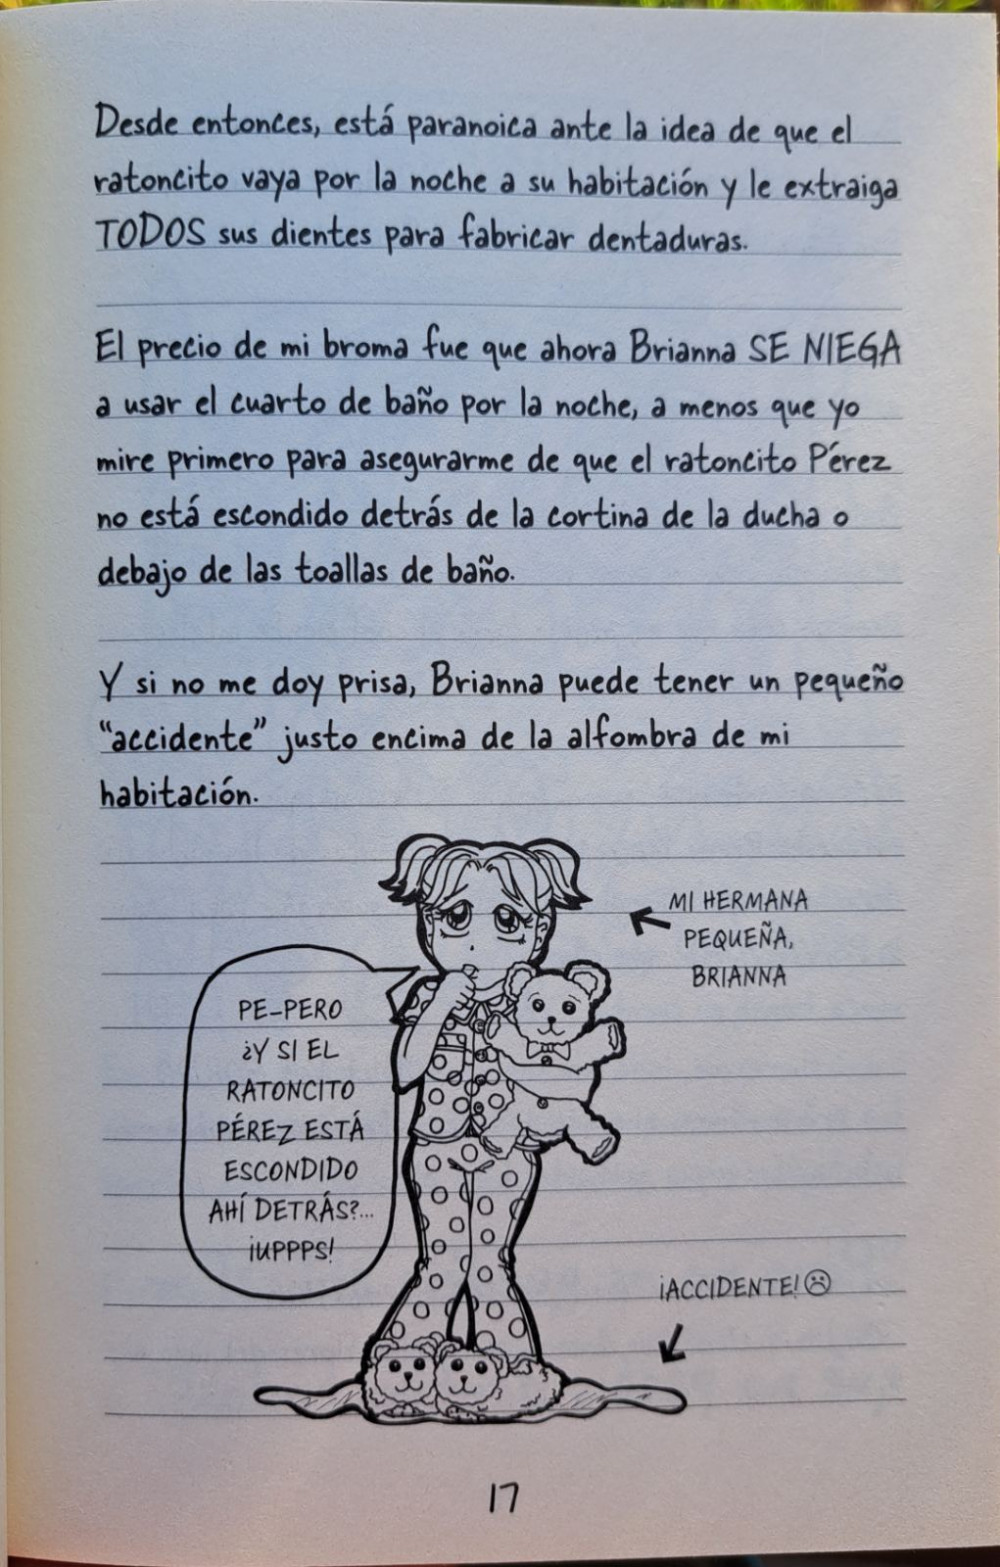 Desde entonces, está paranoica ante la idea de que el
ratoncito vaya por la noche a su habitación y le extraiga
TODOS sus dientes para fabricar dentaduras.
El precio de mi broma fue que ahora Brianna SE NIEGA
a usar el cuarto de baño por la noche, a menos que yo
mire primero para asegurarme de que el ratoncito Pérez
no está escondido detrás de la cortina de la ducha o
debajo de las toallas de baño.
Y si no me doy prisa, Brianna puede tener un pequeño
“accidente” justo encima de la alfombra de mi
habitación.
MI HERMANA
PEQUEÑA,
BRIANNA
PE-PERO
¿Y SI EL
RATONCITO
PÉREZ ESTÁ
ESCONDIDO
AHÍ DETRÁS?...
¡UPPPS!
¡ACCIDENTE! ☹
17